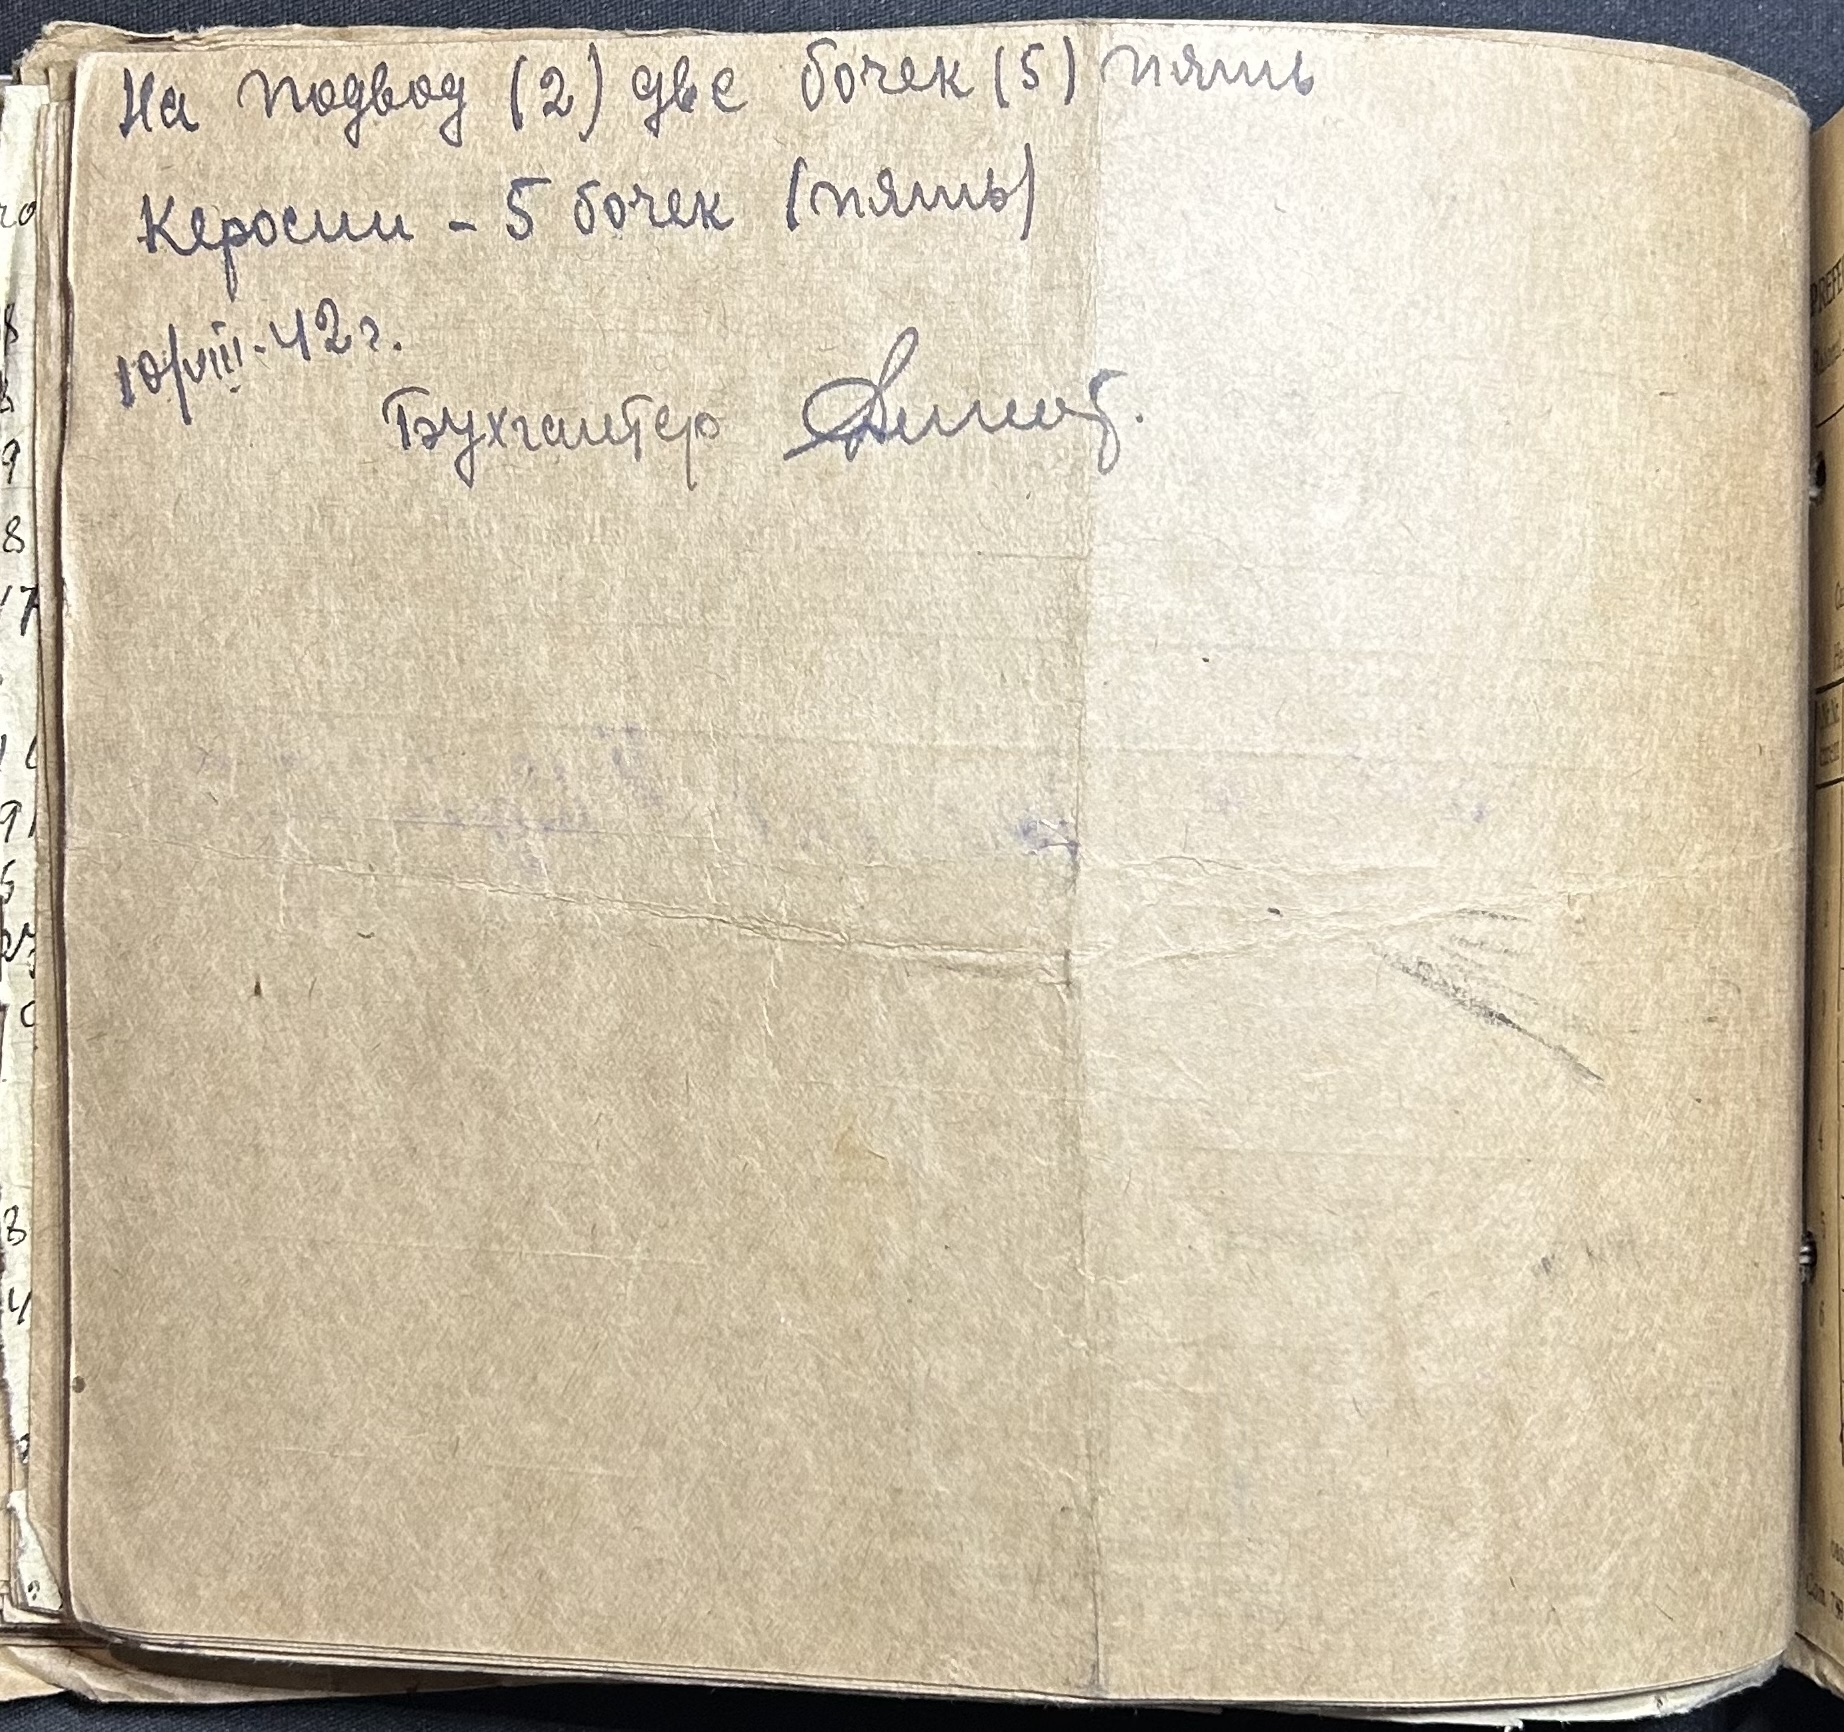 На подвод (2) две бочек (5) пять
Керосин - 5 бочек (пять)
10/VIII-42г.
Бухгалтер